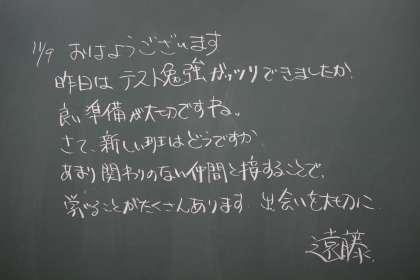 11/9 おはようございます
昨日は テスト勉強 ガッツリ できましたか?
良い準備が大切ですね。
さて、新しい班はどうですか
あまり関わりのない仲間と接することで、
学べることがたくさんあります 出会いを大切に
遠藤